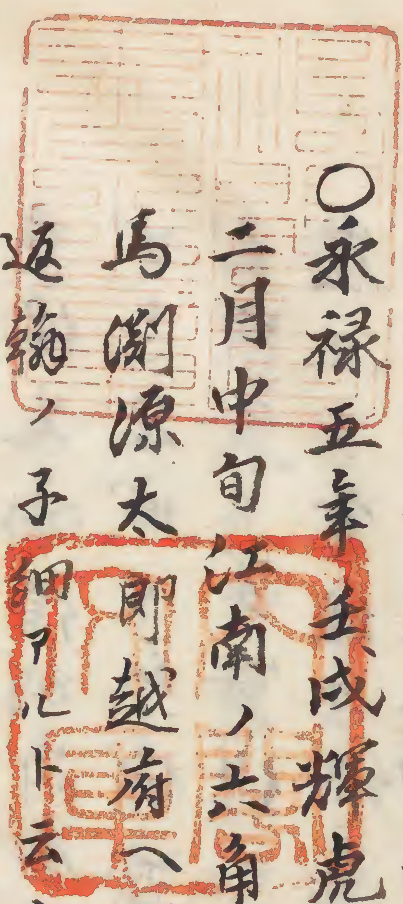 〇永禄五年壬戌輝虎
二月中旬江南ノ六角
馬渕源太郎越府ヘ
返翰ノ子細アルト云